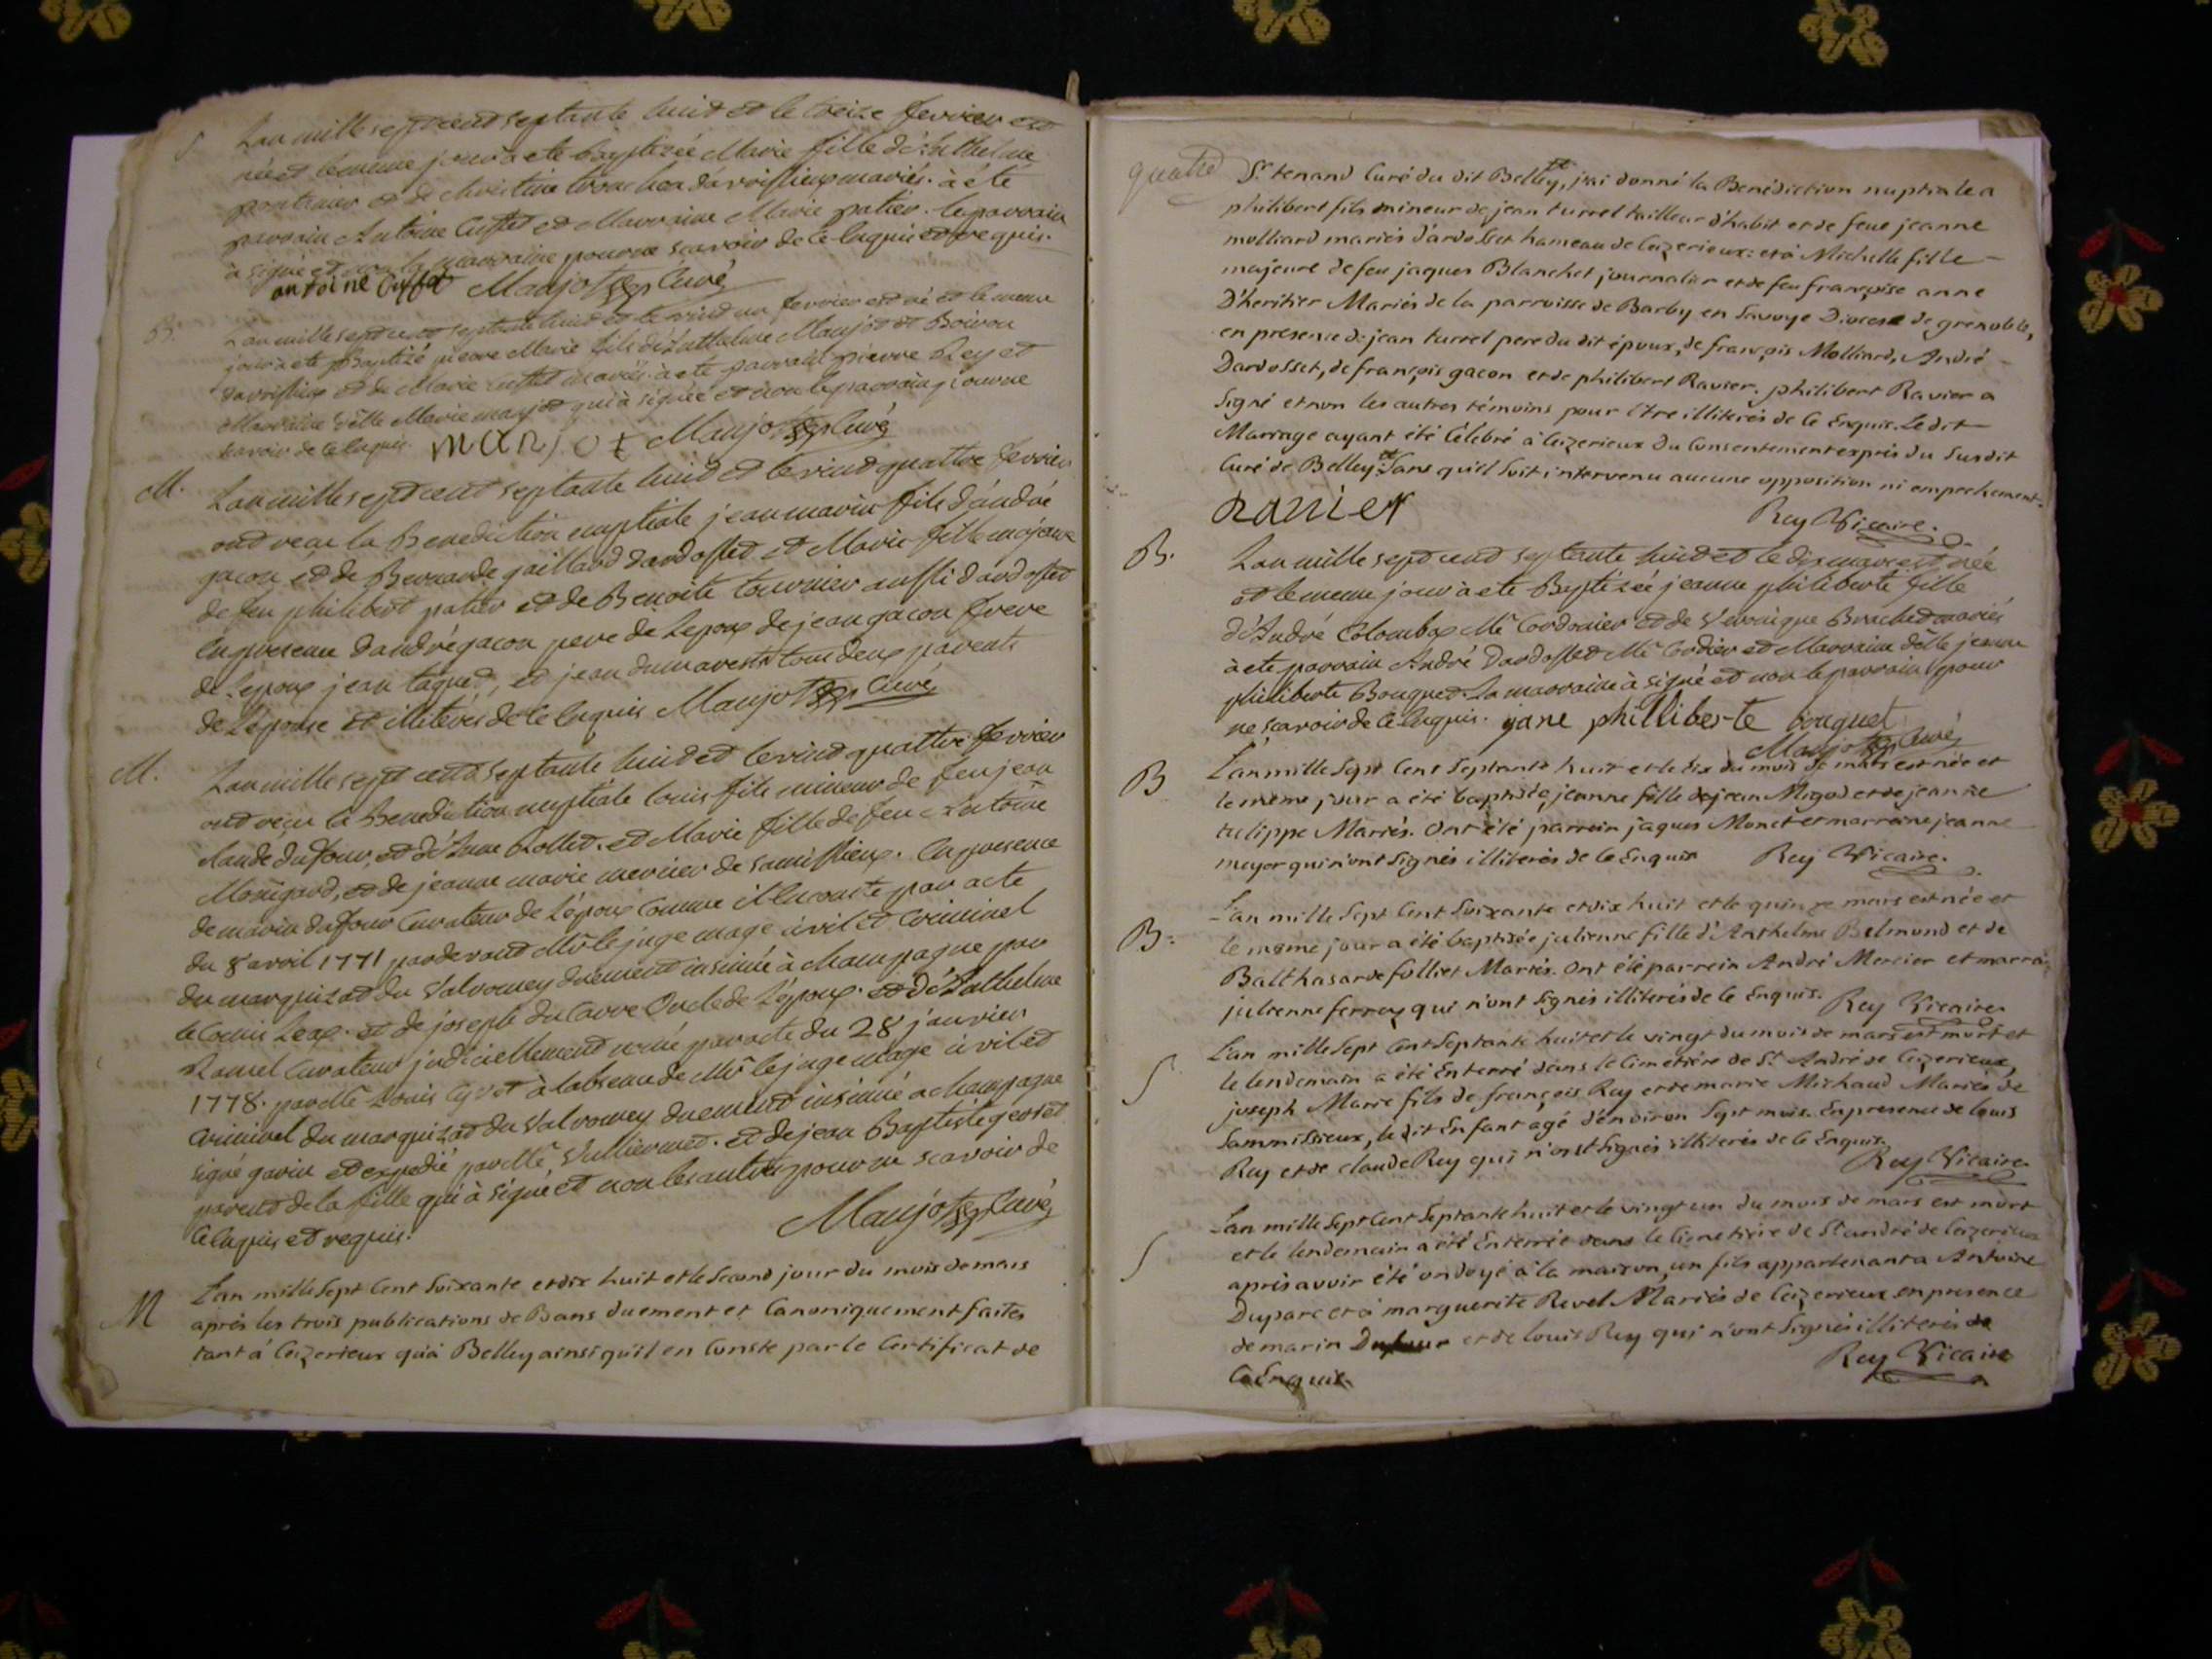 S Lan mille sept cent septante huit et le treize fevrier est
née et le meme jour à eté baptisée Marie fille d'Anthelme
et de Christine mariés. à été
parrain Antoine Cuffet et Marraine Marie patier. le parrain
à signé et non la marraine pour ne scavoir de ce enquis et requis.
antoine Cuffet Maujot Curé
B. Lan mille sept cent septante huit et le vind un fevrier est né et le meme
jour à eté Baptizé pierre Marie fils d'Anthelme Maujot et Boiron
et de Marie Cuffet mariés. à eté parrain pierre Rey et
Marraine Marie maujot qui à signée et non le parrain pour ne
scavoir de ce enquis. manjot Maujot Curé
M. Lan mille sept cent septante huit et le vind quattre fevrier
ont reçu la Benediction nuptiale jean marin fils d'andré
gacon et de Bernarde gaillard dardosset et Marie fille majeure
de feu philibert patier et de Benoite tournier aussi dardosset
en presence dandré gacon pere de Lepoux de jean gacon frere
de Lepoux jean et jean dumarest tous deux parents
de Lépouse et illiterés de ce enquis Maujot Curé
M. Lan mille sept cent septante huit et le vind quattre fevrier
ont reçu la Benediction nuptiale louis fils mineur de feu jean
claude dufour, et d'Anne Rollet. et Marie fille de feu Antoine
et de jeanne marie mercier de En presence
de marin dufour Curateur de L'époux Comme il en conste par acte
du 8 avril 1771 pardevant Mr le juge mage civil et Criminel
du marquizat du Valromey duement insinué à Champagne par
le Comis et de joseph du Carre Oncle de L'époux. et d'Anthelme
Ravel Curateur judiciellement par acte du 28 janvier
1778. à de Mr le juge mage civil et
Criminel du marquizat du Valromey duement insinué a Champagne
signé gavin et expedié par et de jean Baptiste
parent de la fille qui à signé et non les autres pour ne scavoir de
ce enquis et requis. Maujot Curé
M L'an mille Sept Cent Soixante et dix huit et le Second jour du mois de mars
après les trois publications de Bans duement et Canoniquement faites
tant à Ceizerieux qu'à Belley ainsi qu'il en Conste par le Certificat de
quatre Sr. tenand Curé du dit Belley, j'ai donné la Benédiction nuptiale a
philibert fils mineur de jean turrel tailleur d'habit et de feue jeanne
molliard mariés d'ardosset hameau de Ceizerieux: et à Michelle fille
majeure de feu jaques Blanchet journalier et de feu françoise anne
D'heritier Mariés de la parroisse de Barby en Savoye Diocese de grenoble,
en presence de jean turrel pere du dit époux, de françois Molliard, André
Dardosset, de françois gacon et de philibert Ravier. philibert Ravier a
Signé et non les autres témoins pour être illiterés de Ce Enquis. Le dit
Mariage ayant été Célebré à Ceizerieux du Consentement exprès du Susdit
Curé de Belley Sans qu'il Soit intervenu aucune opposition ni empechement.
Ravier Rey Vicaire.
B. Lan mille sept cent septante huit et le dix mars est née
et le meme jour à eté Baptizée jeanne philiberte fille
d'André Colomb Me Cordonier et de Veronique Brachet mariés
à eté parrain André Dardosset Me Cordier et Marraine delle jeanne
philiberte Bouquet. La marraine à signé et non le parrain pour
ne scavoir de ce enquis. jane philliberte bouquet
Maujot Curé
B L'an mille Sept Cent Septante huit et le dix du mois de mars est née et
le même jour a été baptisée jeanne fille de jean Migod et de jeanne
tulippe Mariés. Ont été parrein jaques Monet et marreine jeanne
meyer qui n'ont Signés illiterés de Ce Enquis Rey Vicaire.
B: L'an mille Sept Cent Soixante et dix huit et le quinze mars est née et
le même jour a été baptisée julienne fille d'Anthelme Belmond et de
Balthasarde folliet Mariés. Ont été parrein André Mercier et marrei
julienne ferroz qui n'ont Signés illiterés de Ce Enquis. Rey Vicaire
S L'an mille Sept Cent Septante huit et le vingt du mois de mars est mort et
le lendemain a été Enterré dans le Cimetière de St André de Ceizerieux,
joseph Marie fils de françois Rey et de marie Michaud Mariés de
Sammissieux, le dit Enfant agé d'environ Sept mois. En presence de louis
Rey et de claude Rey qui n'ont Signés illiterés de Ce Enquis.
Rey Vicaire
S L'an mille Sept Cent Septante huit et le vingt un du mois de mars est mort
et le lendemain a été Enterré dans le Cimetière de St andré de Ceizerieux
après avoir été ondoyé à la maison, un fils appartenant a Antoine
Duparc et à marguerite Revel Mariés de Ceizerieux en presence
de marin Dufour et de louis Rey qui n'ont Signés illiterés de
Ce Enquis. Rey Vicaire